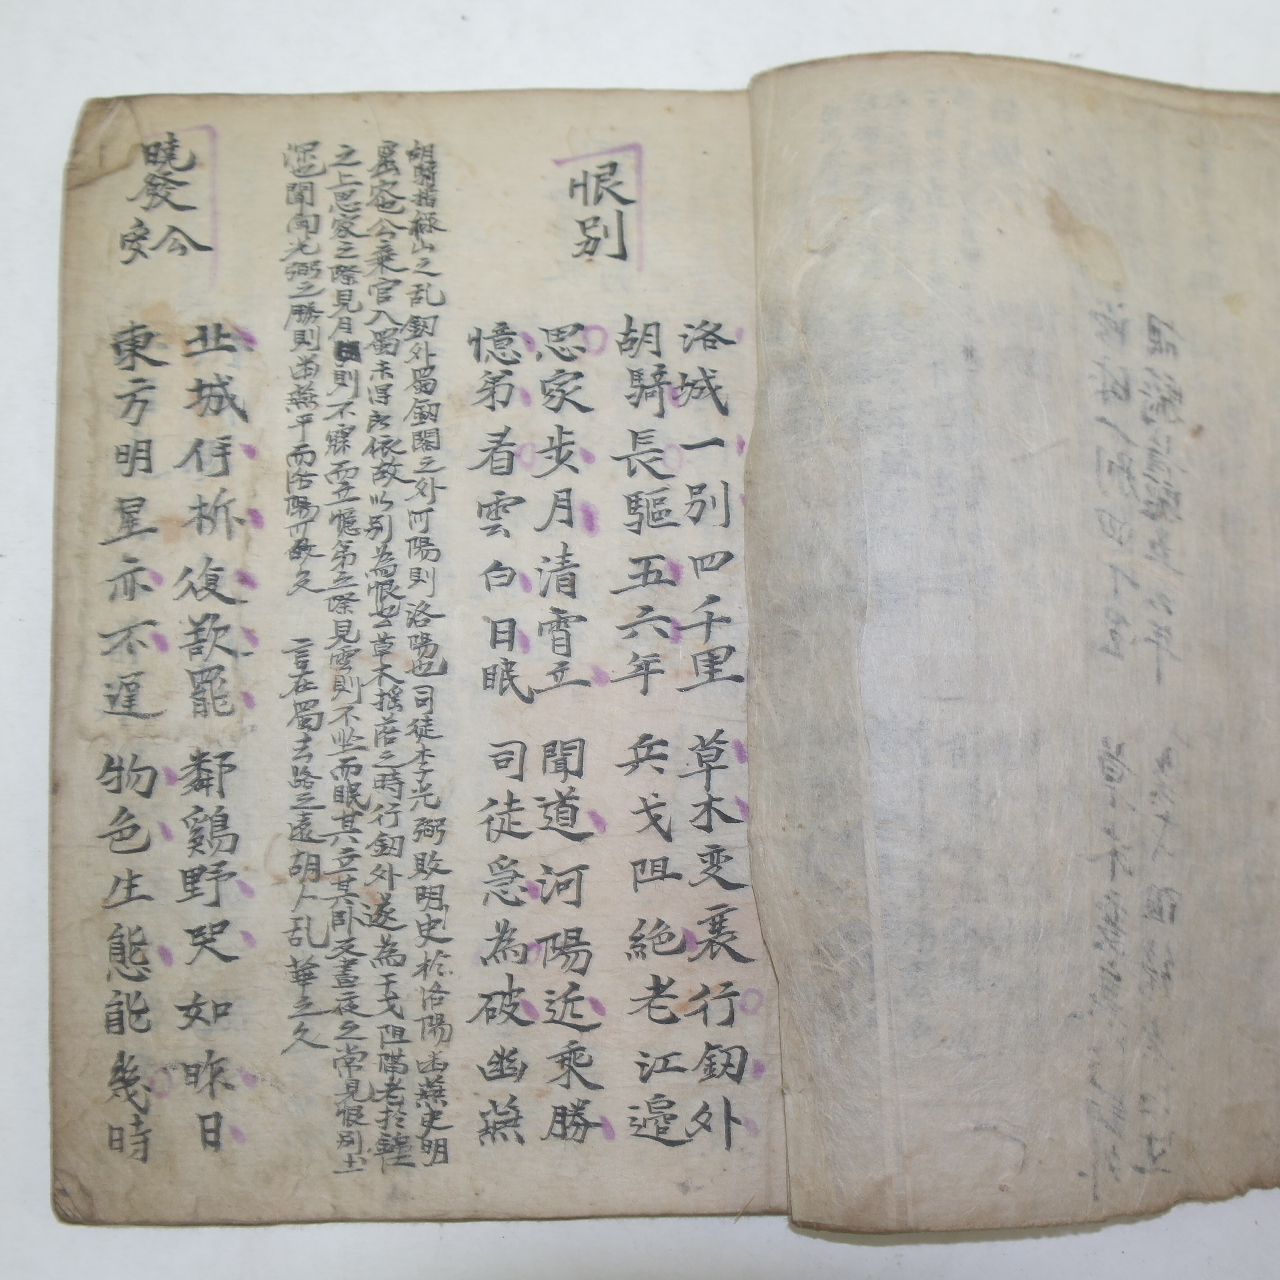 恨別
洛城一別四千里 草木变衰行釰外
胡騎長驅五六年 兵戈阻絶老江邉
思家步月清霄立 聞道河陽近乘勝
憶弟看雲白日眠 司徒急為破幽燕
胡騎指祿山之乱釰外蜀釰閣之外河陽則洛陽也司徒李光弼敗明史於洛陽幽燕史明
公棄官入蜀未得所依故以別為恨也草木搖落之時行釰外遂為干戈阻隔老於
之上思家之際見月則不寐而立憶弟之際見雲則不坐而眠其立其臥反晝夜之常見恨別
深也聞向光弼之勝則幽燕平而洛陽可 言在蜀去路之遠胡人乱華之久
曉發公安
北城侟柝復歎罷 鄰鷄野哭如昨日
東方明星亦不遲 物色生態能幾時